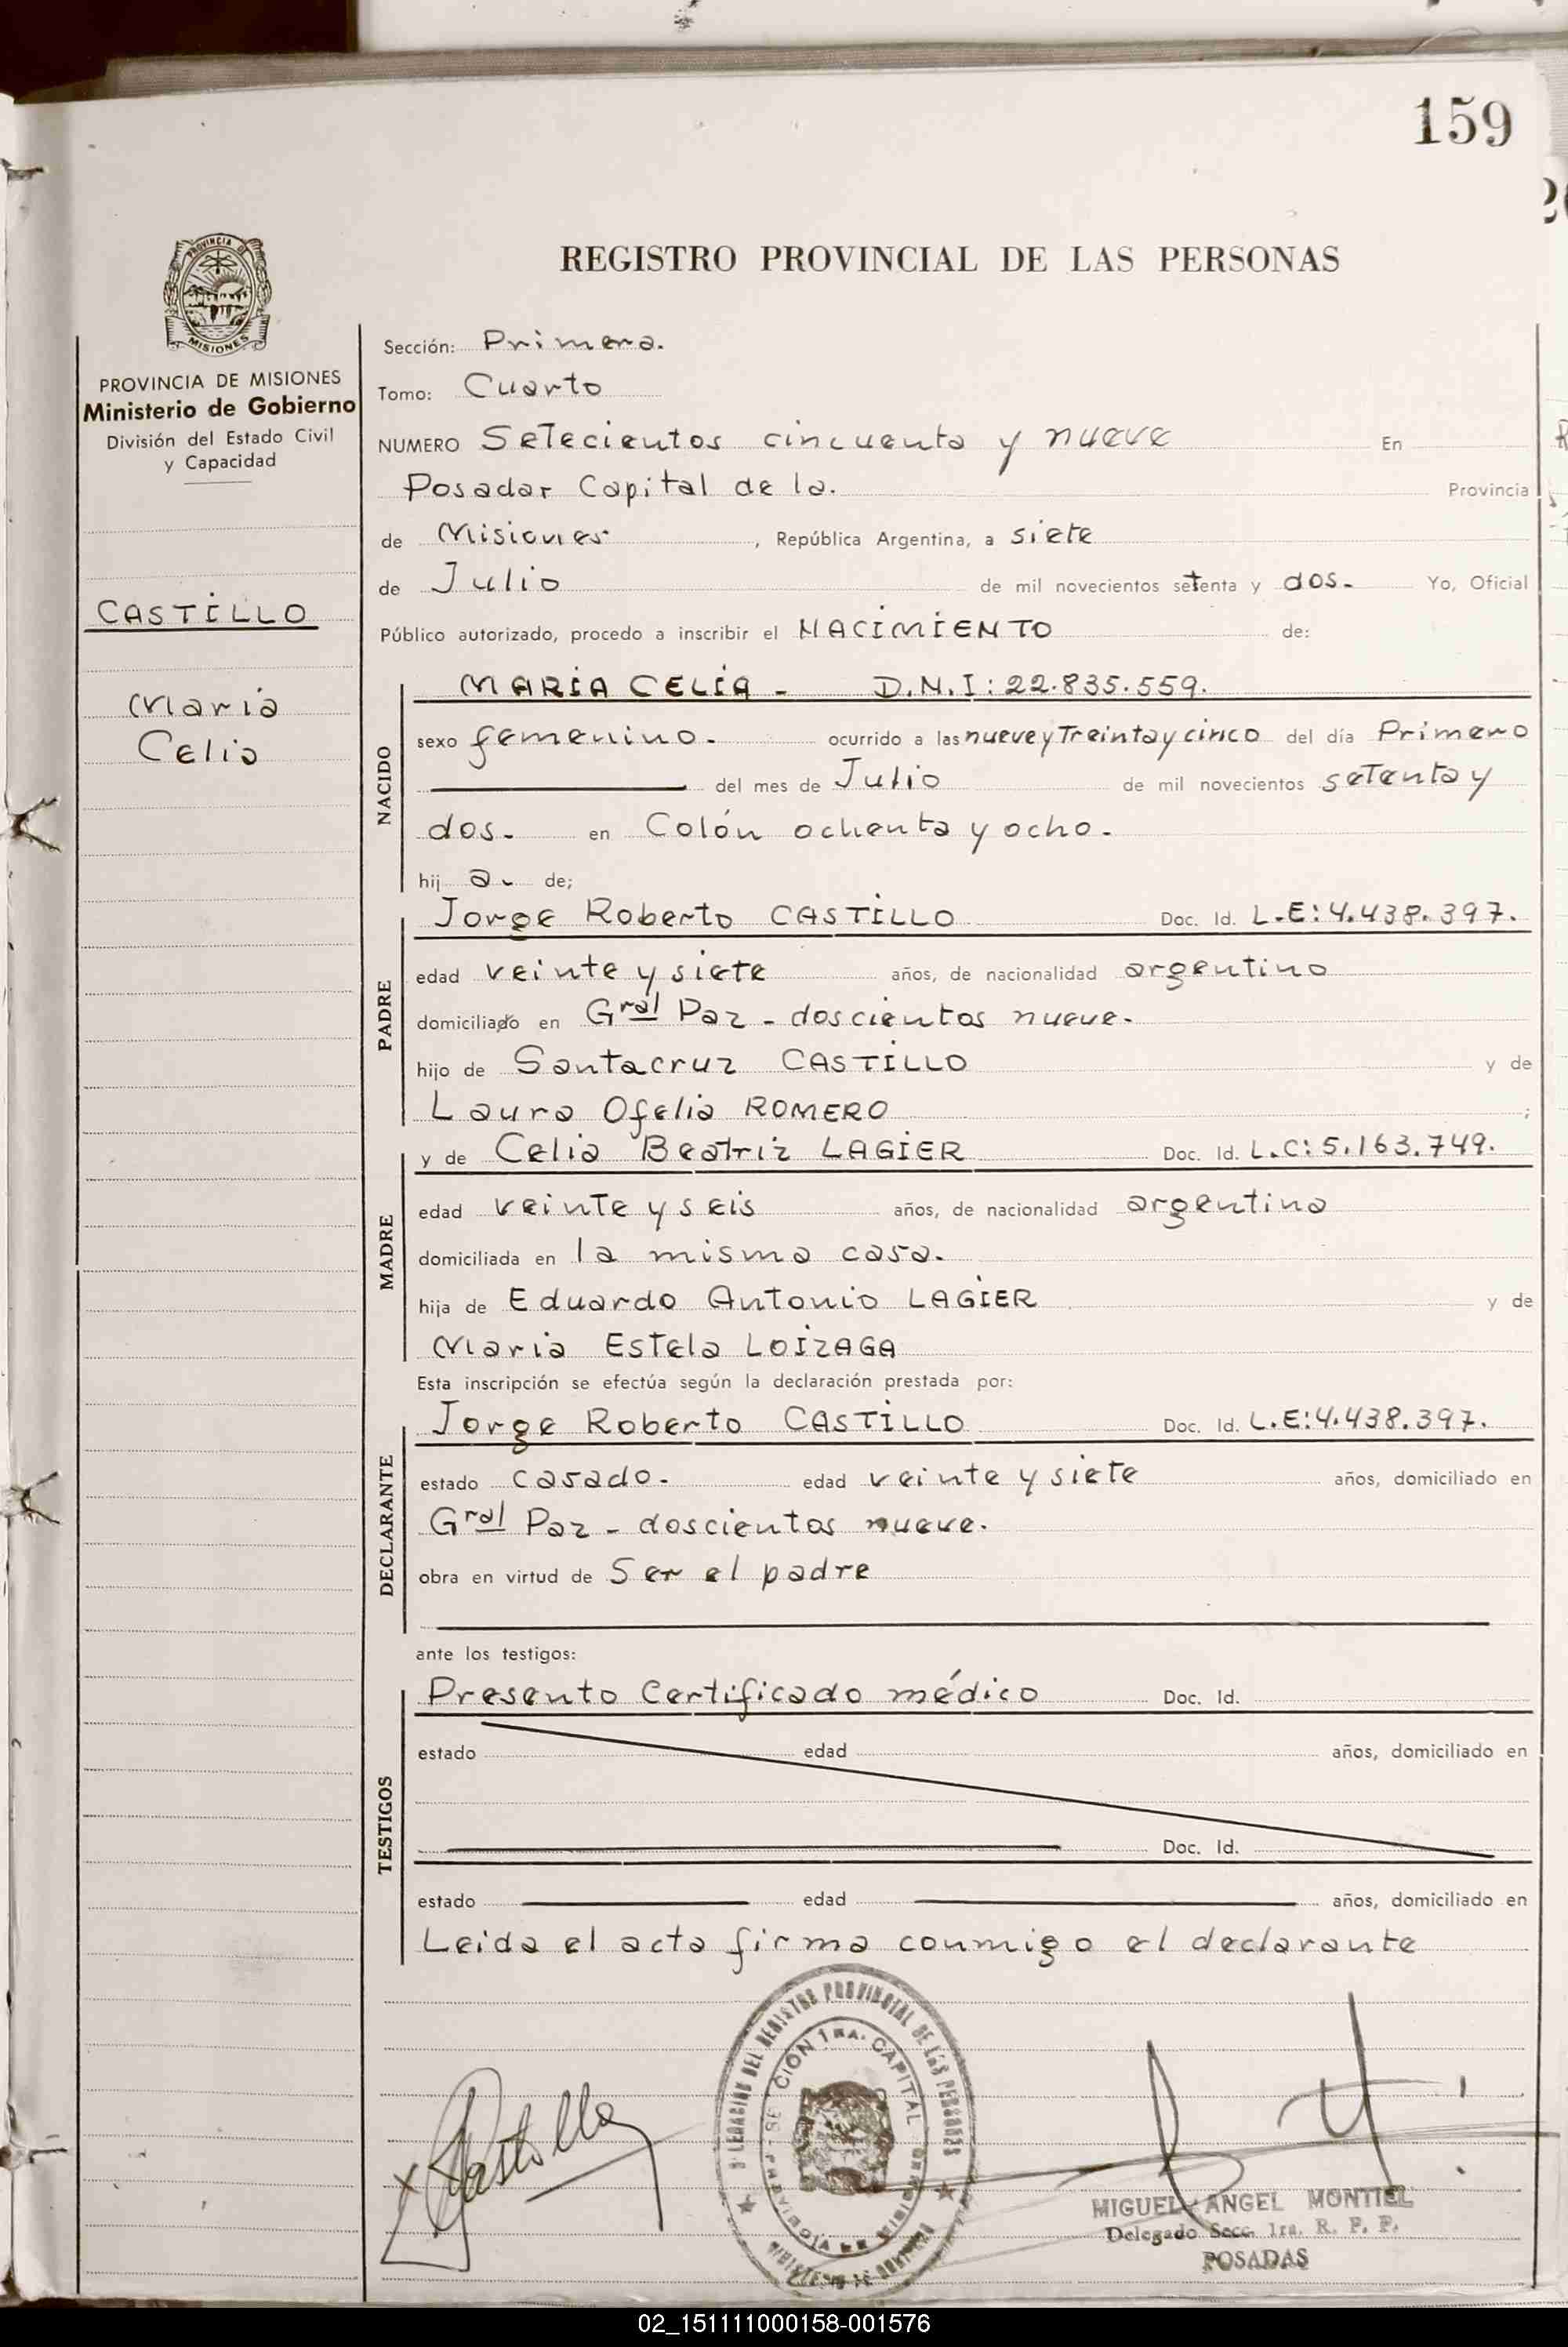 159
REGISTRO PROVINCIAL DE LAS PERSONAS
PROVINCIA DE MISIONES
PROVINCIA DE MISIONES
Ministerio de Gobierno
División del Estado Civil
y Capacidad
CASTILLO
Maria
Celia
Sección: Primera.
Tomo: Cuarto
NUMERO Setecientos cincuenta y nueve En
Posadas Capital de la. Provincia
de Misiones , República Argentina, a siete
de Julio de mil novecientos setenta y dos. Yo, Oficial
Público autorizado, procedo a inscribir el NACIMIENTO de:
NACIDO
MARIA CELIA - D.N.I: 22.835.559.
sexo femenino. ocurrido a las nueve y Treinta y cinco del día Primero
del mes de Julio de mil novecientos setenta y
dos. en Colón ochenta y ocho.
hij a. de;
PADRE
Jorge Roberto CASTILLO Doc. Id. L.E: 4.438.397.
edad veinte y siete años, de nacionalidad argentino
domiciliado en Gral Paz - doscientos nueve.
hijo de Santacruz CASTILLO y de
Laura Ofelia ROMERO ;
MADRE
y de Celia Beatriz LAGIER Doc. Id. L.C: 5.163.749.
edad veinte y seis años, de nacionalidad argentina
domiciliada en la misma casa.
hija de Eduardo Antonio LAGIER y de
Maria Estela LOIZAGA
Esta inscripción se efectúa según la declaración prestada por:
DECLARANTE
Jorge Roberto CASTILLO Doc. Id. L.E: 4.438.397.
estado casado. edad veinte y siete años, domiciliado en
Gral Paz - doscientos nueve.
obra en virtud de Ser el padre
ante los testigos:
TESTIGOS
Presento Certificado médico Doc. Id.
estado edad años, domiciliado en
Doc. Id.
estado edad años, domiciliado en
Leida el acta firma conmigo el declarante
DEL REGISTRO PROVINCIAL DE LAS PERSONAS
SECCION 1RA. CAPITAL
PROVINCIA DE MISIONES
x Castillo
MIGUEL ANGEL MONTIEL
Delegado Secc. 1ra. R. P. P.
POSADAS
02_151111000158-001576